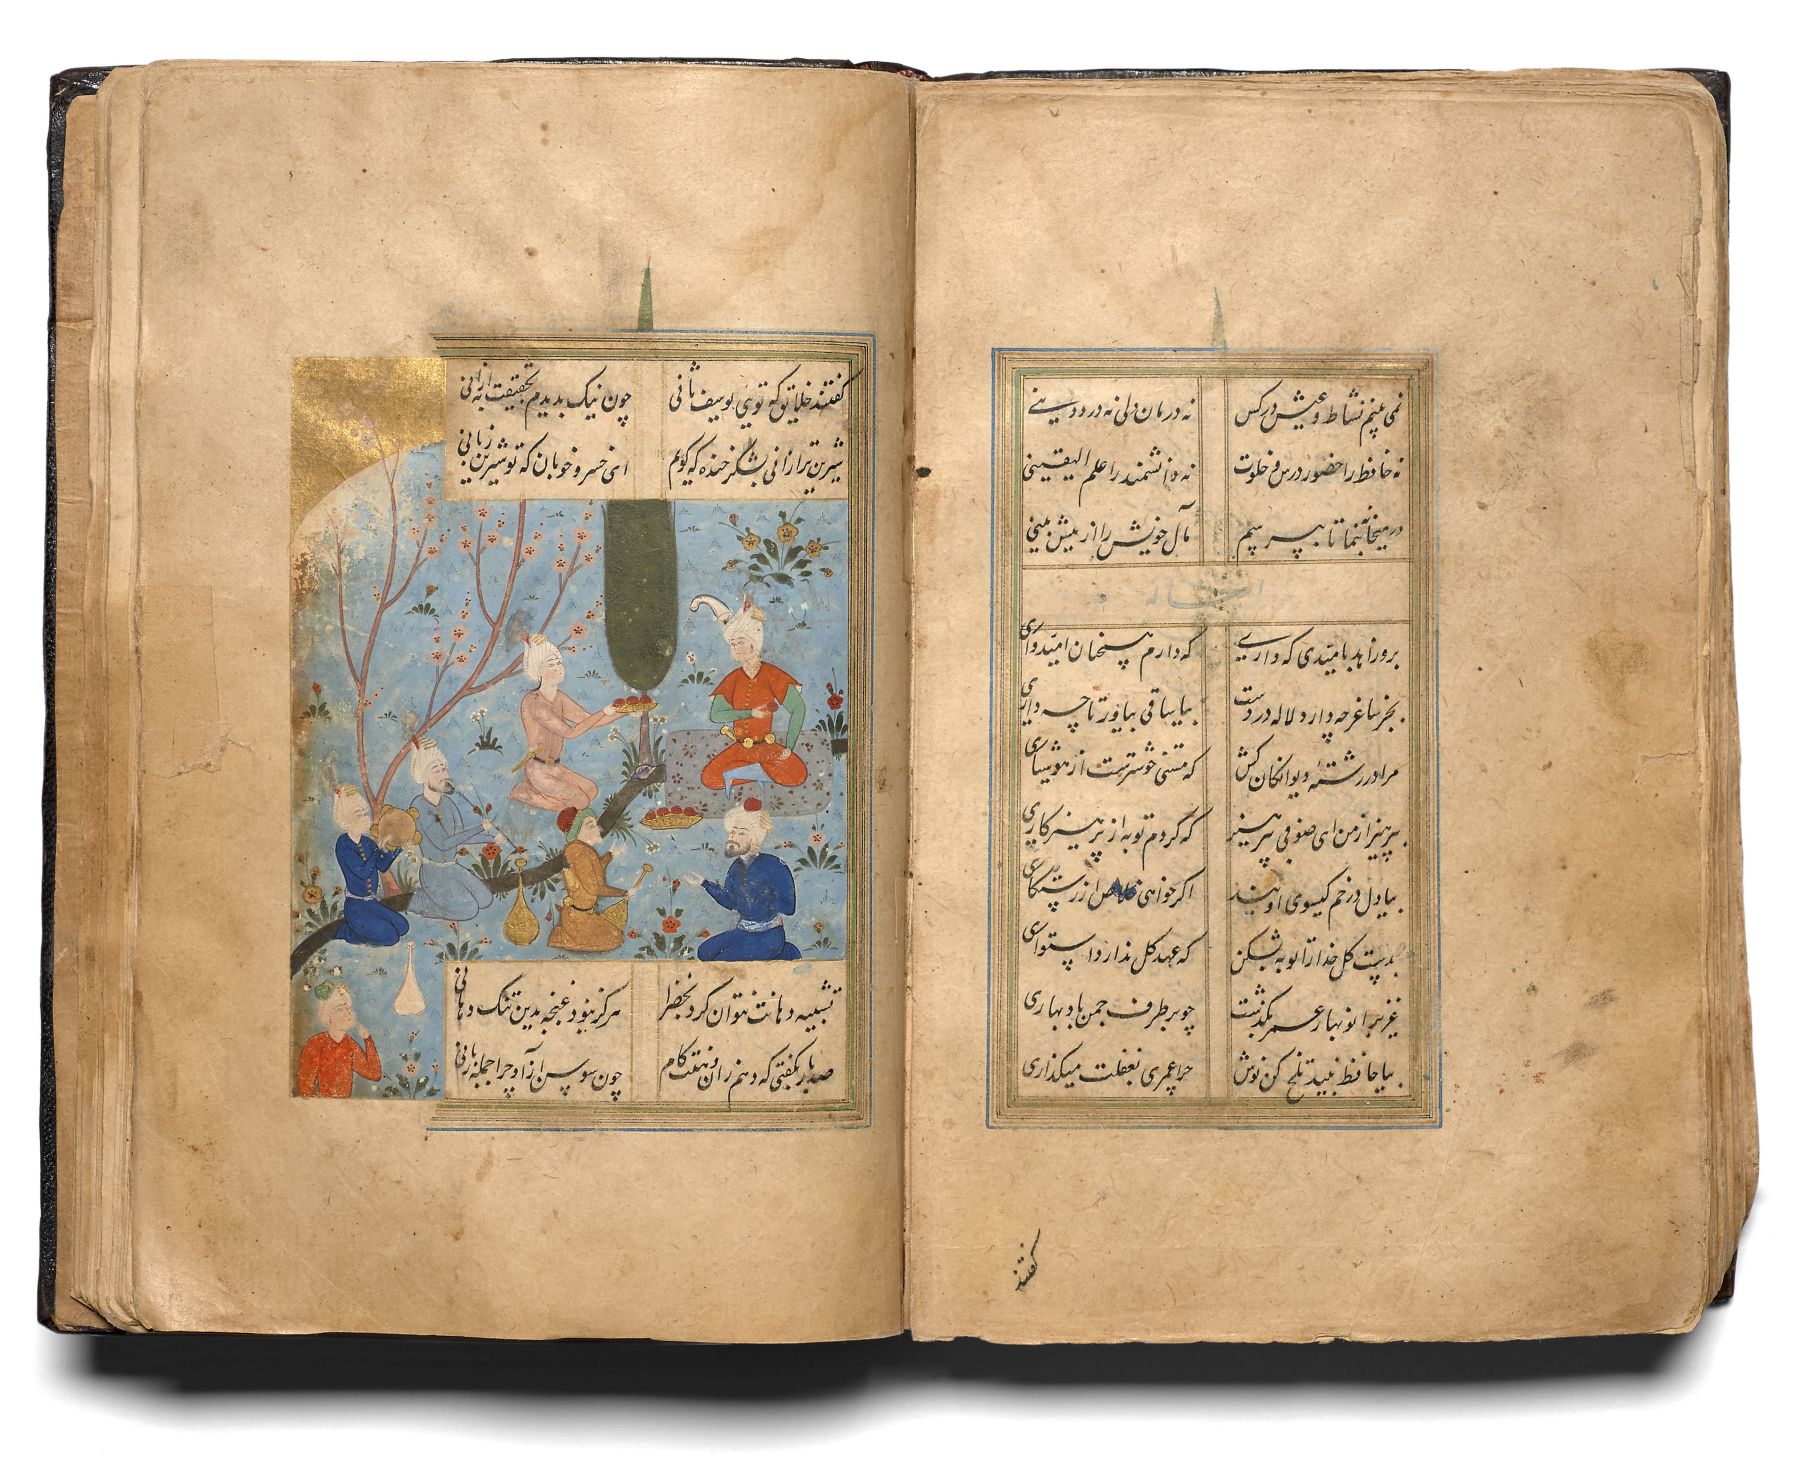 نمی بینم نشاط و عیش در کس نه درمان دلی نه درد دینی
نه حافظ را حضور درس و خلوت نه دانشمند را علم الیقینی
در میخانه بنما تا بپرسم مآل خویش را از پیش بینی
برو زاهد بامیدی که داری که دارم همچنان امیدواری
بجز ساغر چه دارد لاله در دست بیا ساقی بیاور تا چه داری
مرا در رشته دیوانگان کش که مستی خوشترست از هوشیاری
بپرهیز از من ای صوفی بپرهیز که کردم توبه از پرهیزکاری
بیا دل در خم گیسوی او بند اگر خواهی خلاص از رستگاری
گل خدا را توبه بشکن که عهد گل ندارد استواری
عزیزا نوبهار عمر بگذشت چو بر طرف چمن باد بهاری
بیا حافظ نبید تلخ کن نوش چرا عمری بغفلت میگذاری
گفتند
گفتند خلایق که تویی یوسف ثانی چون نیک بدیدم بحقیقت به ازانی
شیرین تر ازانی بشکر خنده که گویم ای خسرو خوبان که تو شیرین زمانی
تشبیه دهانت نتوان کرد هرگز نبود غنچه بدین تنگ دهانی
صد بار بگفتی که دهم زان دهنت کام چون سوسن آزاد چرا جمله زبانی